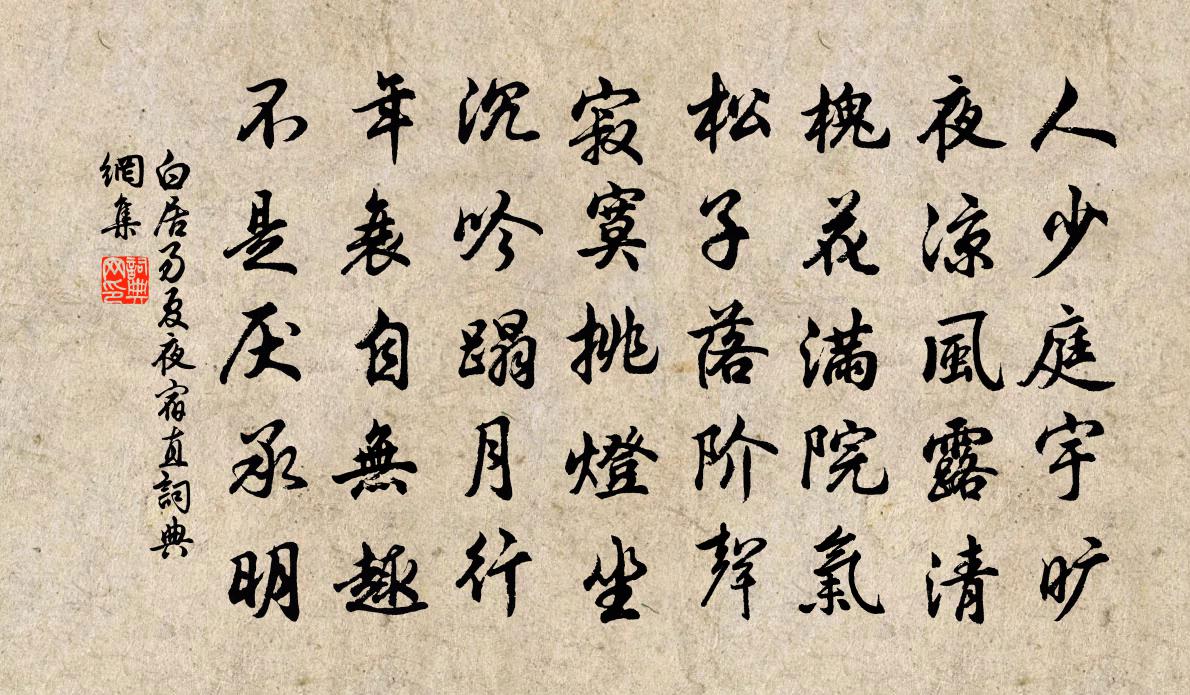 人少庭宇旷
夜涼風露清
槐花滿院氣
松子落阶聲
寂寞挑燈坐
沉吟蹋月行
年衰自無趣
不是厌承明
白居易夏夜宿直詞典
網集
詞典
网印